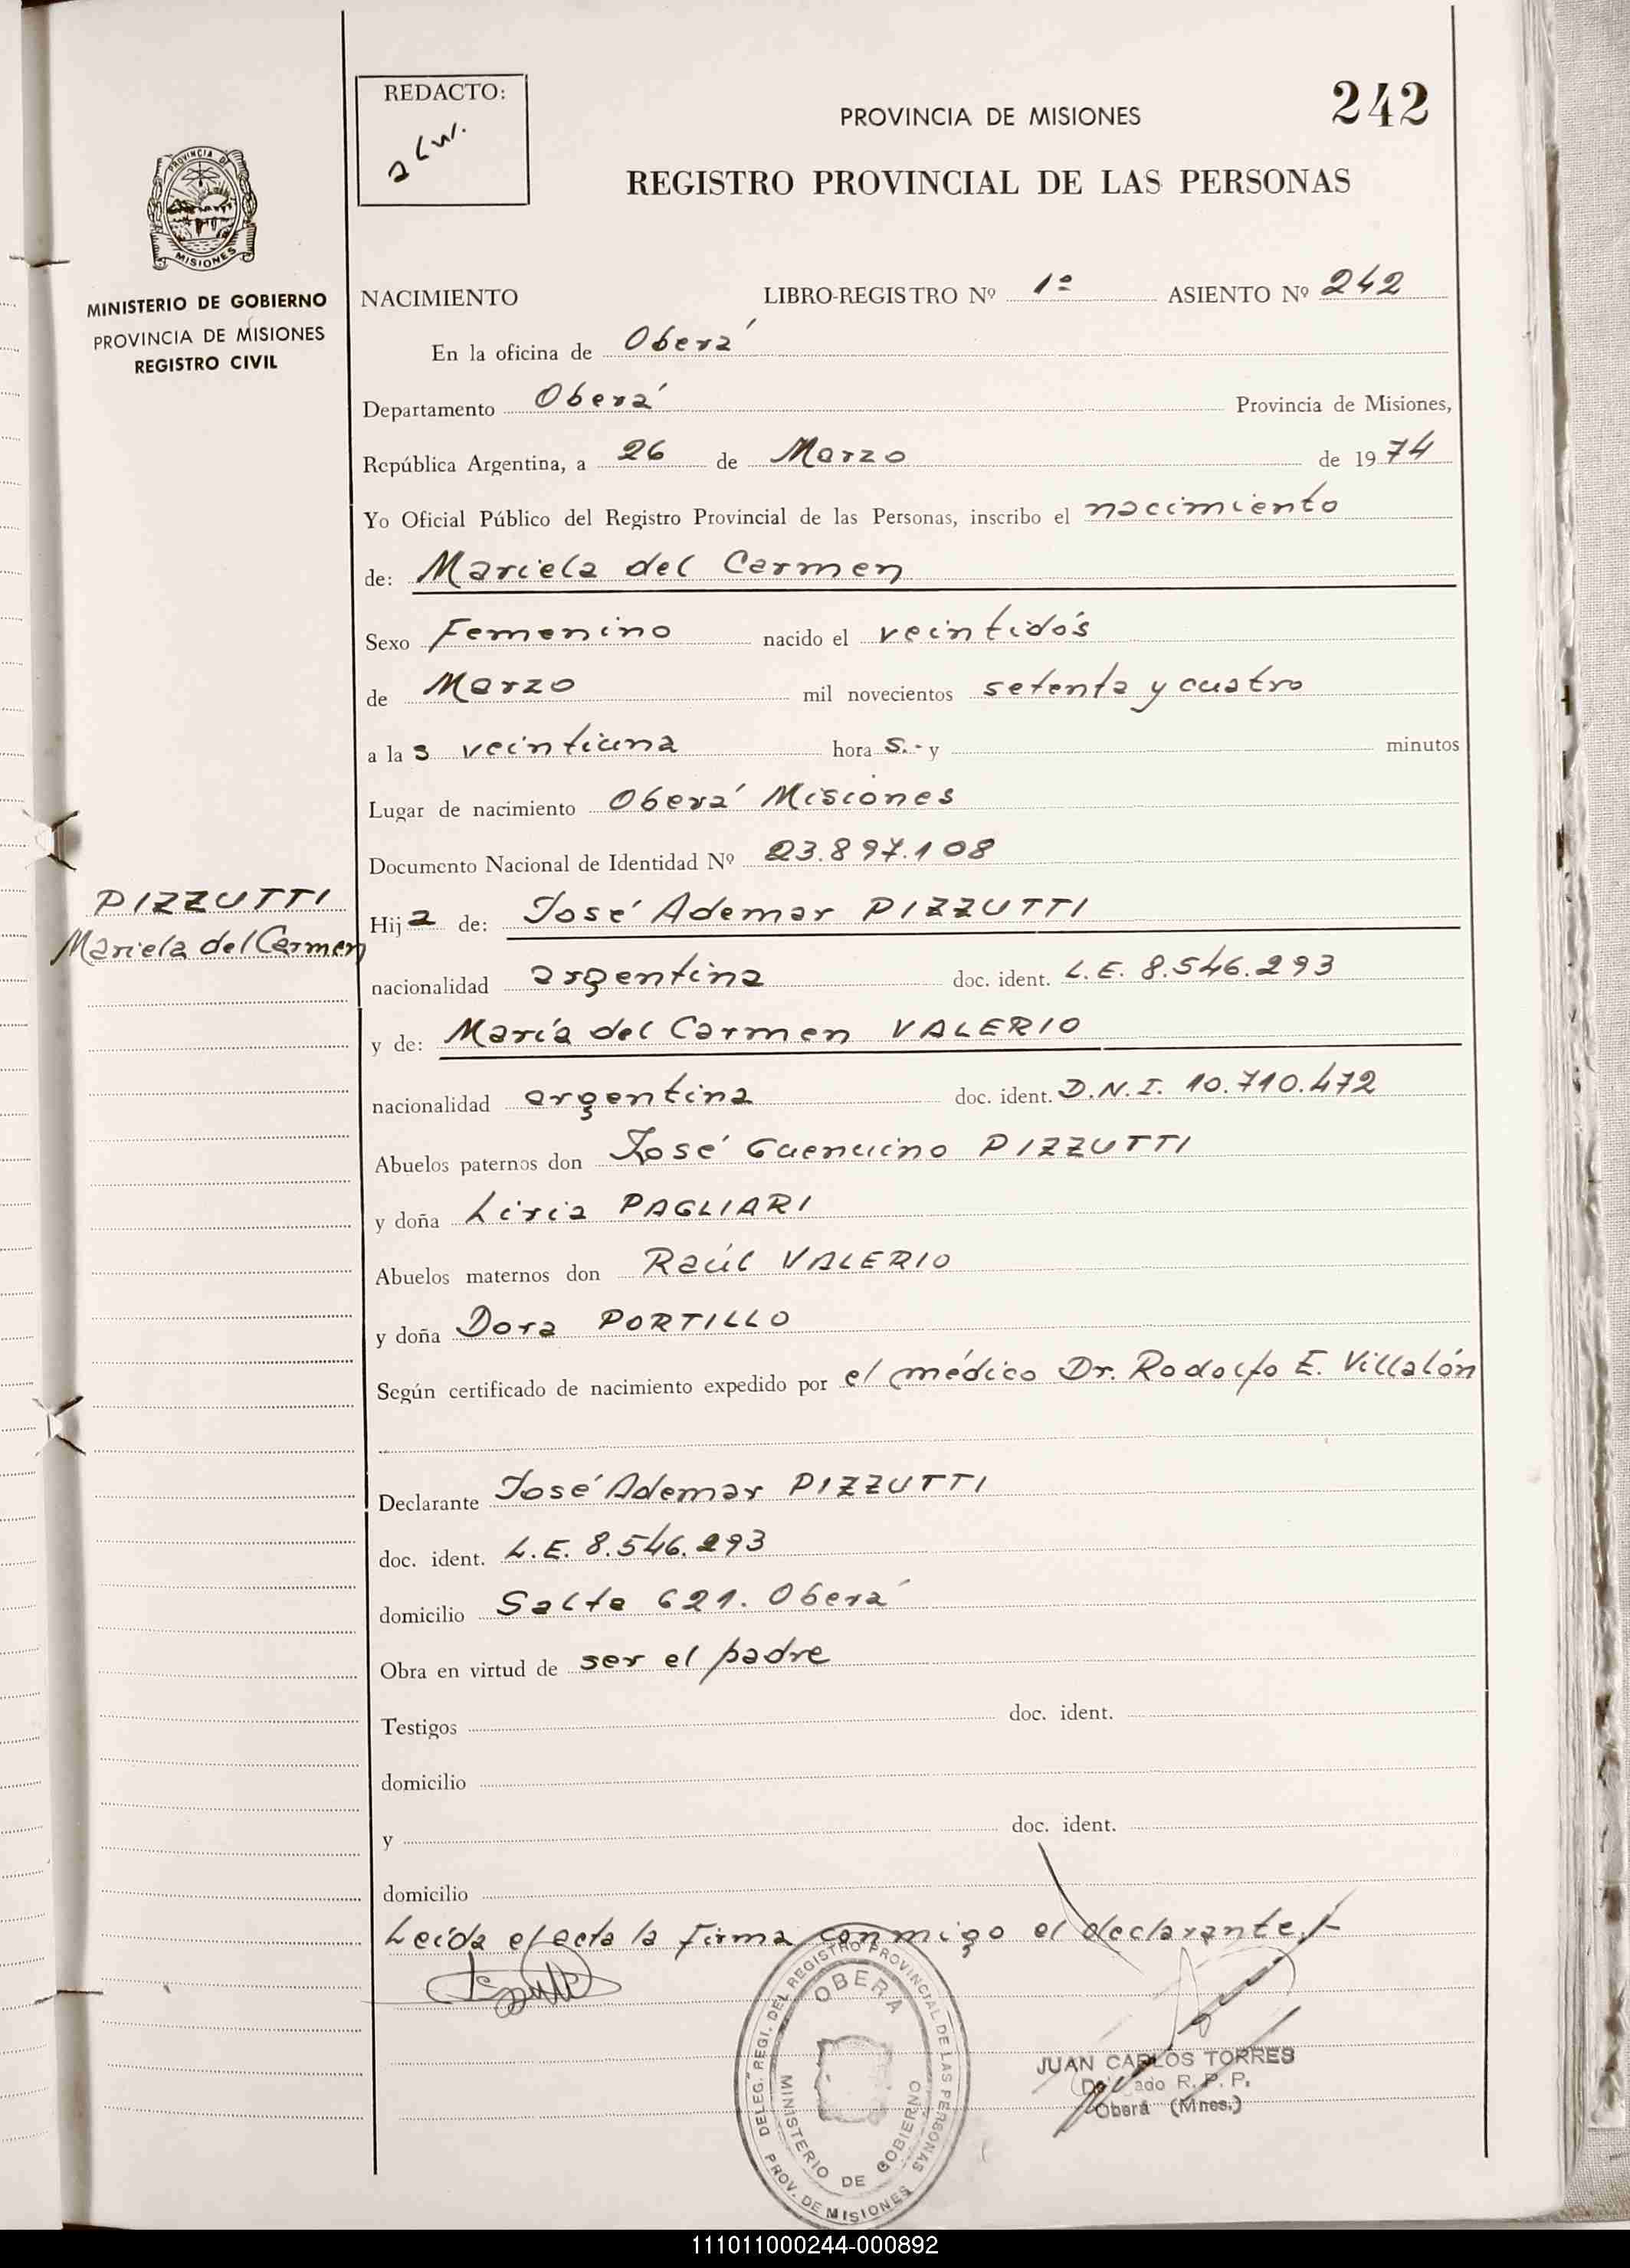 REDACTO:
242
PROVINCIA DE MISIONES
REGISTRO PROVINCIAL DE LAS PERSONAS
PROVINCIA DE
MISIONES
MINISTERIO DE GOBIERNO
PROVINCIA DE MISIONES
REGISTRO CIVIL
NACIMIENTO LIBRO-REGISTRO Nº 1º ASIENTO Nº 242
En la oficina de Oberá
Departamento Oberá Provincia de Misiones,
República Argentina, a 26 de Marzo de 1974
Yo Oficial Público del Registro Provincial de las Personas, inscribo el nacimiento
de: Mariela del Carmen
Sexo Femenino nacido el veintidós
de Marzo mil novecientos setenta y cuatro
a las veintiuna horas.- y minutos
Lugar de nacimiento Oberá Misiones
Documento Nacional de Identidad Nº 23.897.108
PIZZUTTI
Mariela del Carmen
Hija de: José Ademar PIZZUTTI
nacionalidad argentina doc. ident. L.E. 8.546.293
y de: María del Carmen VALERIO
nacionalidad argentina doc. ident. D.N.I. 10.710.472
Abuelos paternos don José PIZZUTTI
y doña Liria PAGLIARI
Abuelos maternos don Raúl VALERIO
y doña Dora PORTILLO
Según certificado de nacimiento expedido por el médico Dr. Rodolfo E. Villalón
Declarante José Ademar PIZZUTTI
doc. ident. L.E. 8.546.293
domicilio Salta 621. Oberá
Obra en virtud de ser el padre
Testigos doc. ident.
domicilio
y doc. ident.
domicilio
Leída el acta la firma conmigo el declarante.-
DELEG. REGI. DEL REGISTRO PROVINCIAL DE LAS PERSONAS
OBERA
MINISTERIO DE GOBIERNO
PROV. DE MISIONES
JUAN CARLOS TORRES
R. P. P.
Oberá (Mnes.)
111011000244-000892